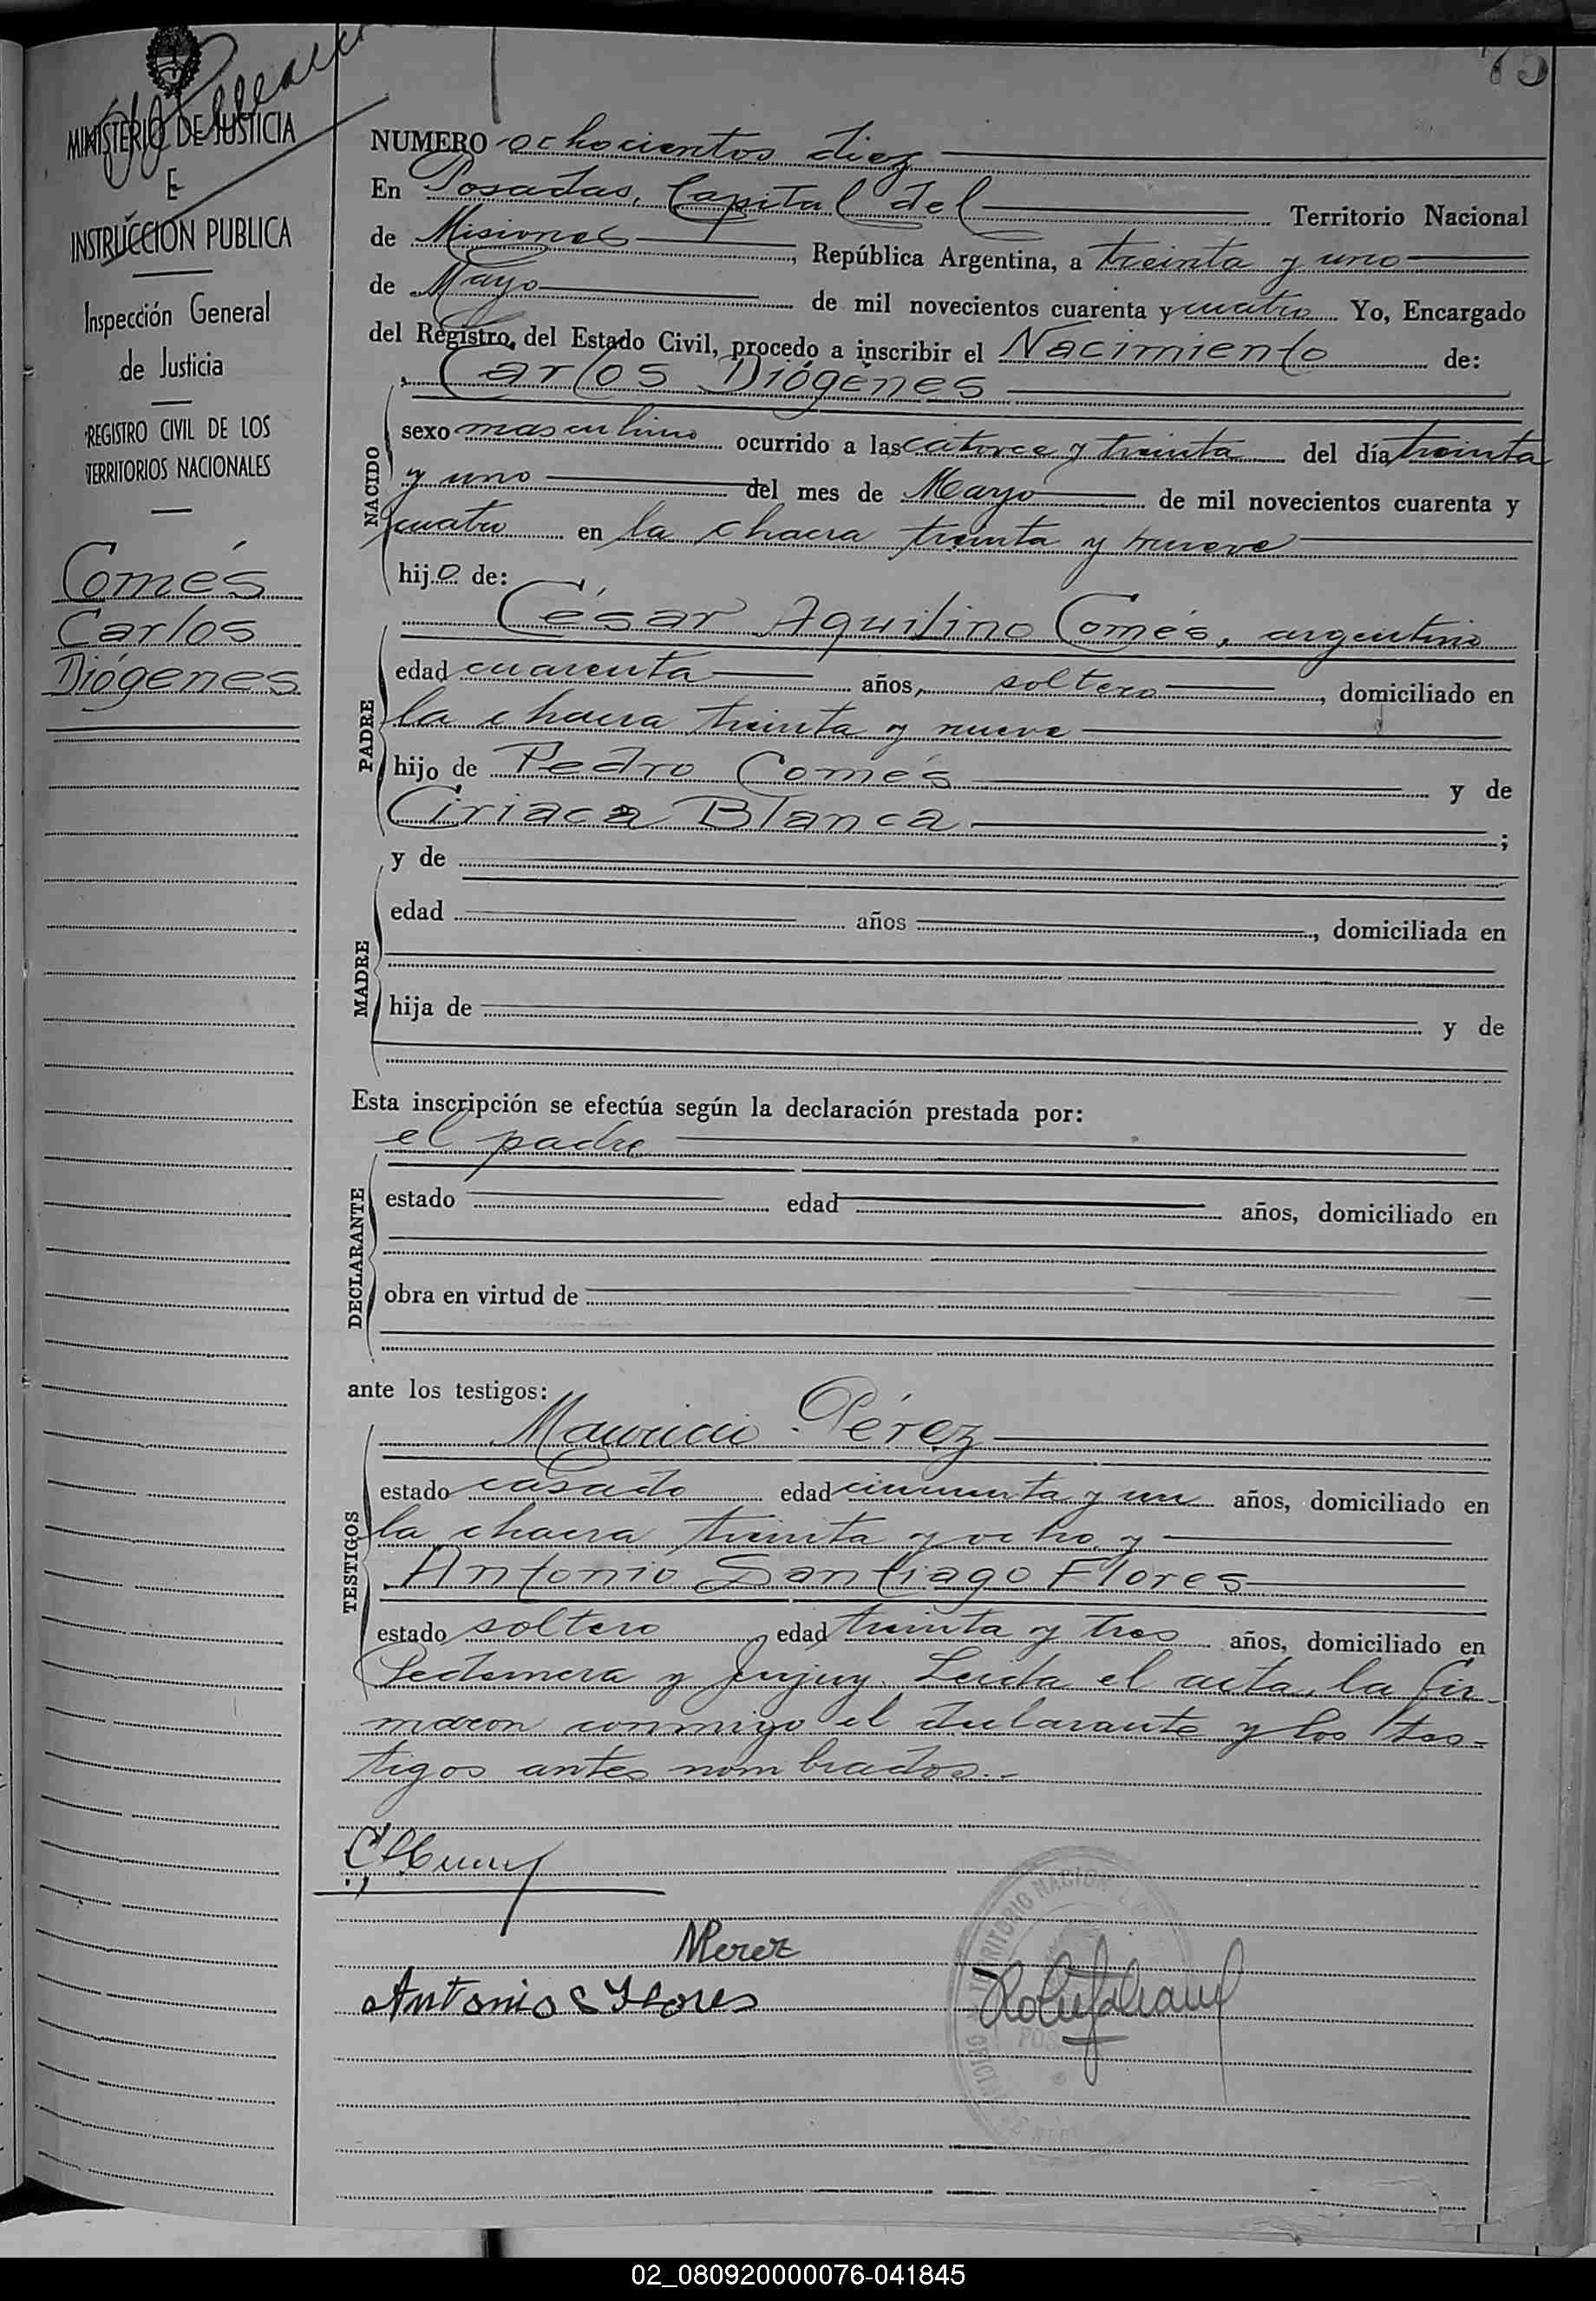 75
MINISTERIO DE JUSTICIA
E
INSTRUCCION PUBLICA
Inspección General
de Justicia
REGISTRO CIVIL DE LOS
TERRITORIOS NACIONALES
Comés
Carlos
Diógenes
NUMERO ochocientos diez
En Posadas, Capital del Territorio Nacional
de Misiones, República Argentina, a treinta y uno
de Mayo de mil novecientos cuarenta y cuatro Yo, Encargado
del Registro, del Estado Civil, procedo a inscribir el Nacimiento de:
Carlos Diógenes
NACIDO
sexo masculino ocurrido a las catorce y treinta del día treinta
y uno del mes de Mayo de mil novecientos cuarenta y
cuatro en la chacra treinta y nueve
hijo de:
César Aquilino Comés, argentino
PADRE
edad cuarenta años, soltero, domiciliado en
la chacra treinta y nueve
hijo de Pedro Comés y de
Ciriaca Blanca;
MADRE
y de
edad años, domiciliada en
hija de y de
Esta inscripción se efectúa según la declaración prestada por:
el padre
DECLARANTE
estado edad años, domiciliado en
obra en virtud de
ante los testigos:
Mauricio Pérez
TESTIGOS
estado casado edad cincuenta y un años, domiciliado en
la chacra treinta y ocho y
Antonio Santiago Flores
estado soltero edad treinta y tres años, domiciliado en
Pedernera y Jujuy. Leída el acta, la fir-
maron conmigo el declarante y los tes-
tigos antes nombrados.-
MPerez
Antonio S Flores
02_080920000076-041845